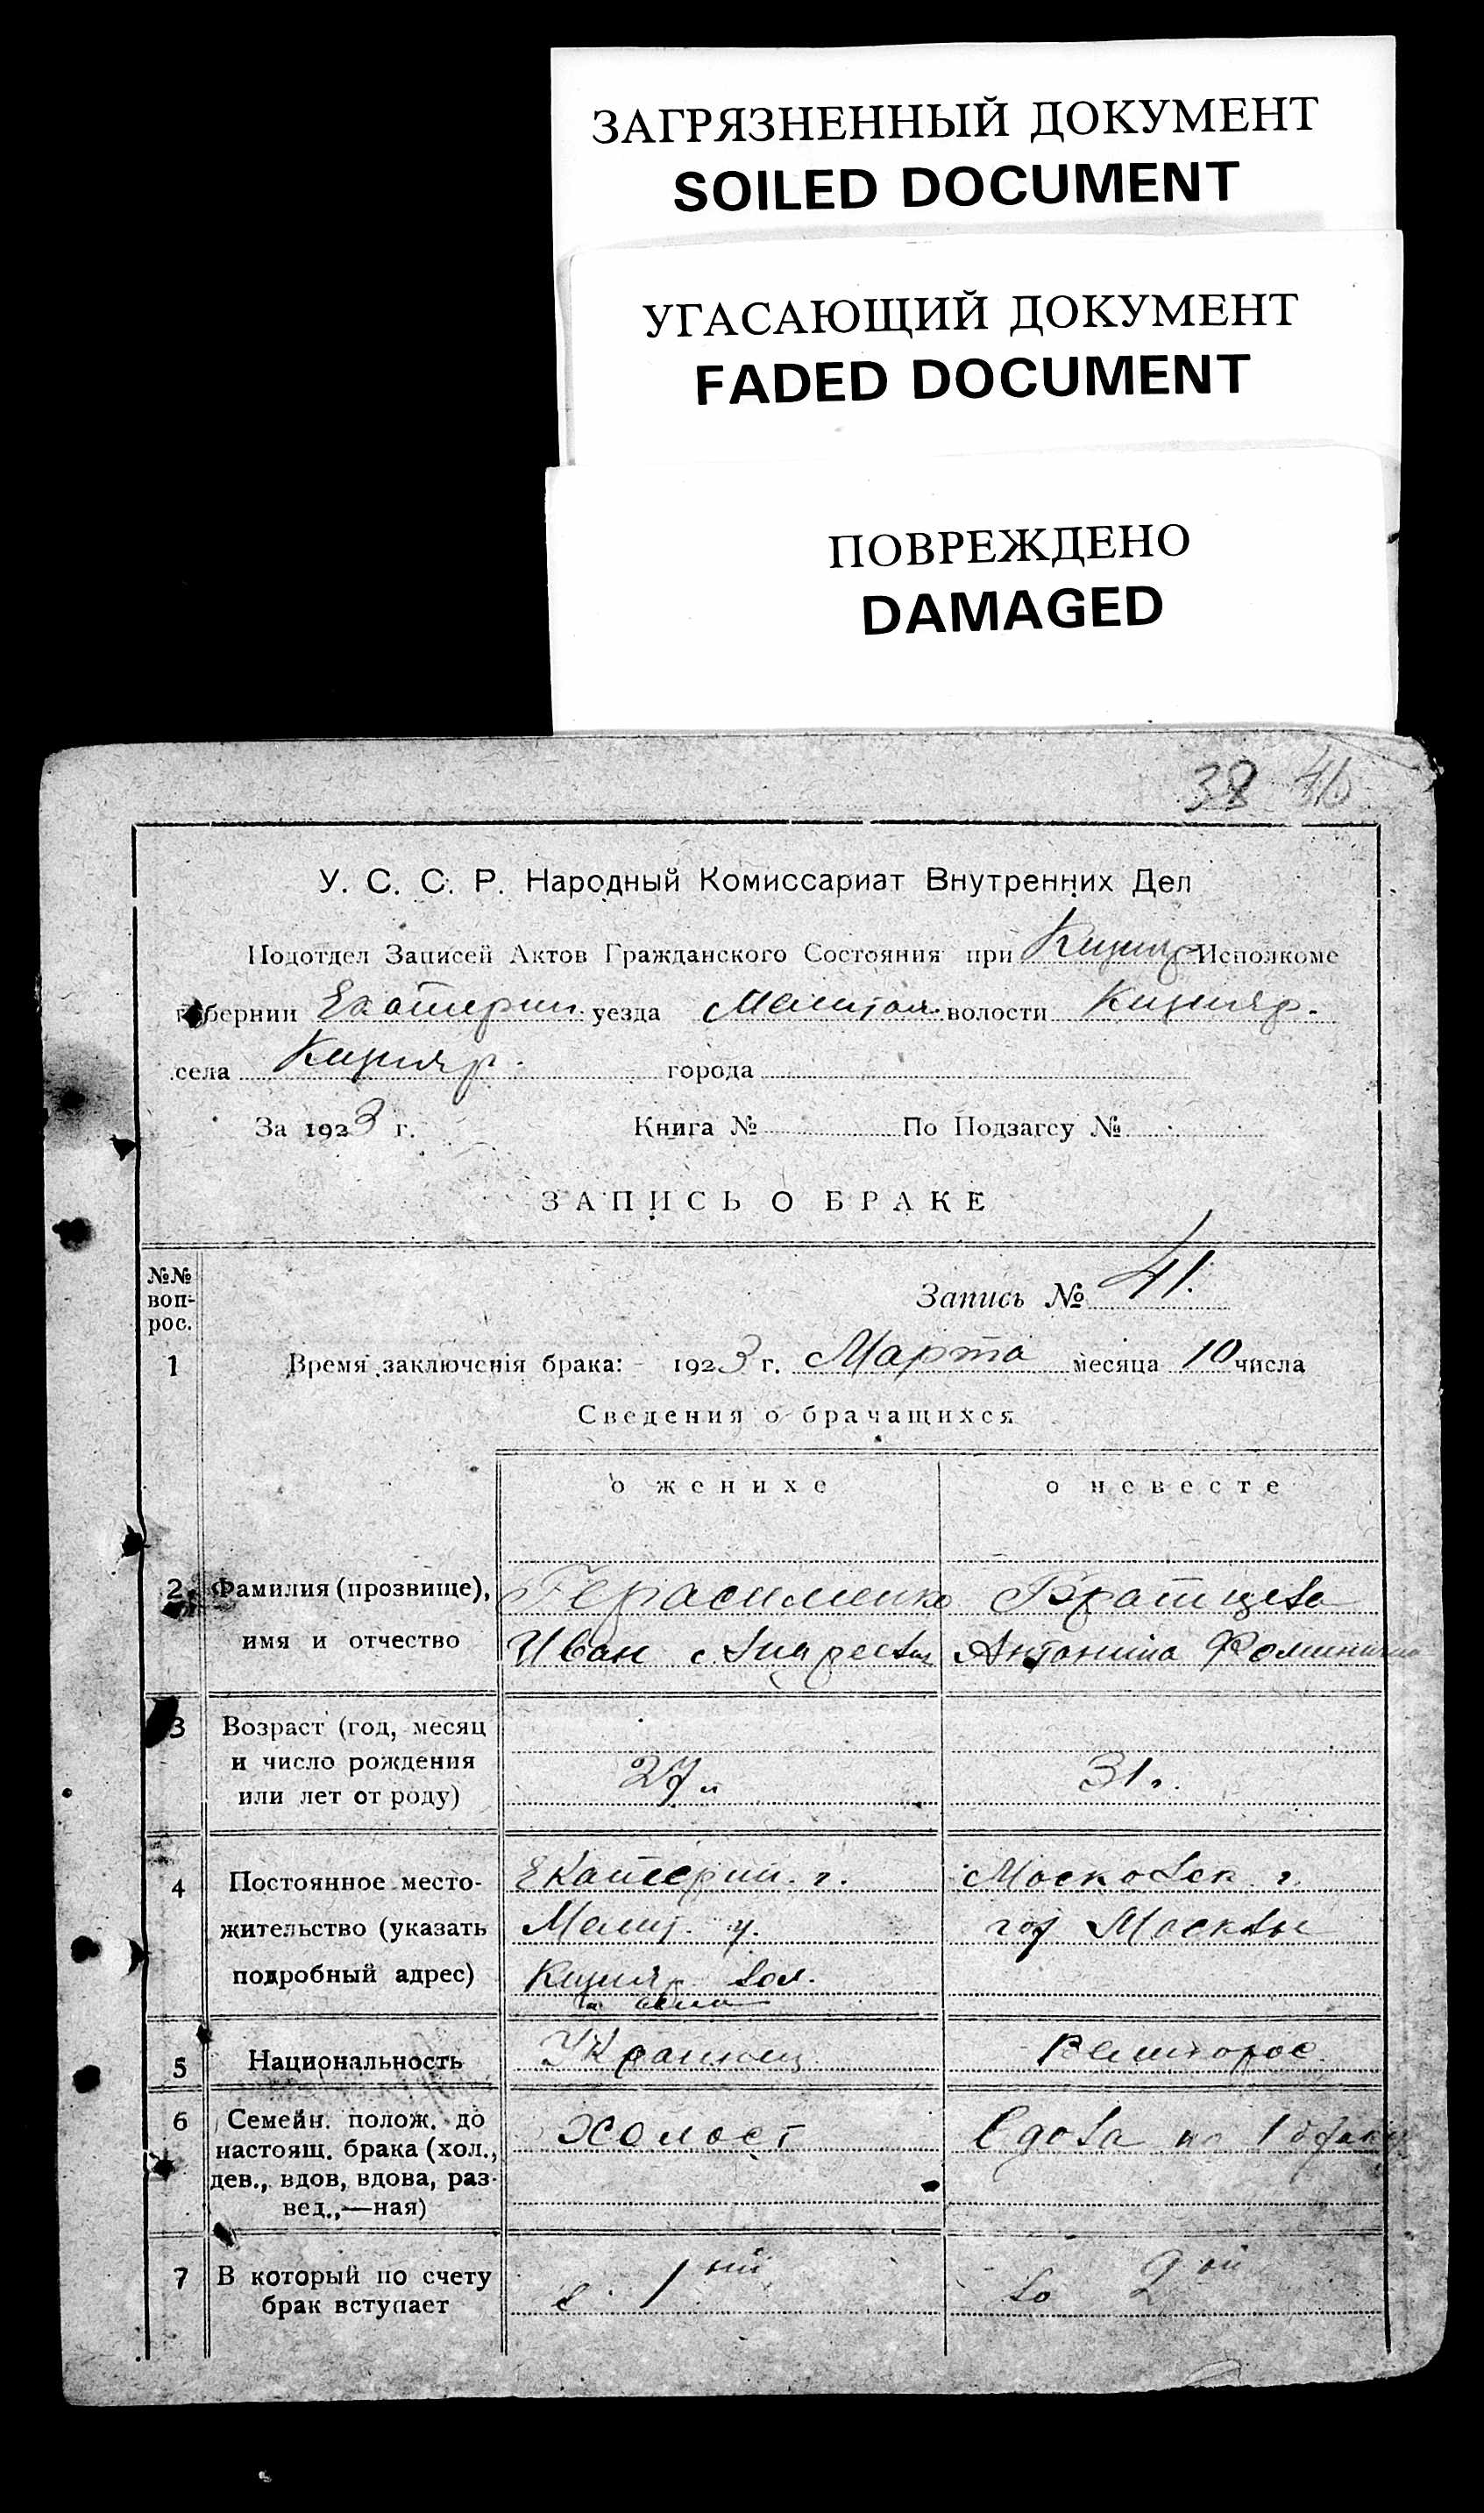 ЗАГРЯЗНЕННЫЙ ДОКУМЕНТ
SOILED DOCUMENT
УГАСАЮЩИЙ ДОКУМЕНТ
FADED DOCUMENT
ПОВРЕЖДЕНО
DAMAGED
38 46
У. С. С. Р. Народный Комиссариат Внутренних Дел
Подотдел Записей Актов Гражданского Состояния при Кизияр Исполкоме
губернии Екатерин. уезда Мелитоп. волости Кизияр.
села Кизияр. города
За 1923 г. Книга № По Подзагсу №
ЗАПИСЬ О БРАКЕ
№№ вопрос.
Запись № 41.
1 Время заключенія брака: 1923 г. Марта месяца 10 числа
Сведения о брачащихся
о женихе о невесте
2 Фамилия (прозвище), Герасименко Братцева
имя и отчество Иван Андреев Антонина
3 Возраст (год, месяц
и число рождения 27 л. 31 г.
или лет от роду)
4 Постоянное место- Екатерин. г. Московск. г.
жительство (указать Мелит. у. гор Москвы
подробный адрес) Кизияр. вол.
села
5 Национальность Украинец Великорос.
6 Семейн. полож. до Холост Вдова по 1 браку
настоящ. брака (хол.,
дев., вдов, вдова, раз-
вед.,—ная)
7 В который по счету в 1ый во 2ой
брак вступает